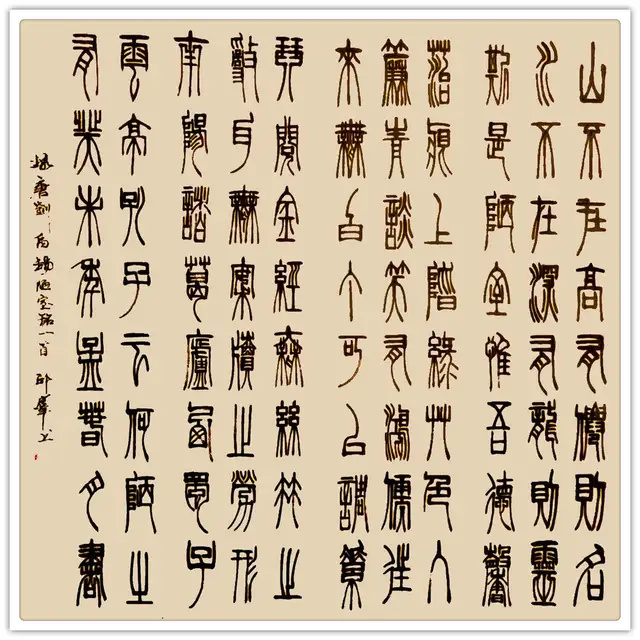 山不在高有僊則名
水不在深有龍則靈
斯是陋室惟吾德馨
苔痕上階綠艸色入
簾青談笑有鴻儒往
來無白丁可以調素
琴閱金經無絲竹之
亂耳無案牘之勞形
南陽諸葛廬西蜀子
雲亭孔子云何陋之
有癸未年孟春月書
錄唐劉禹錫陋室銘一首